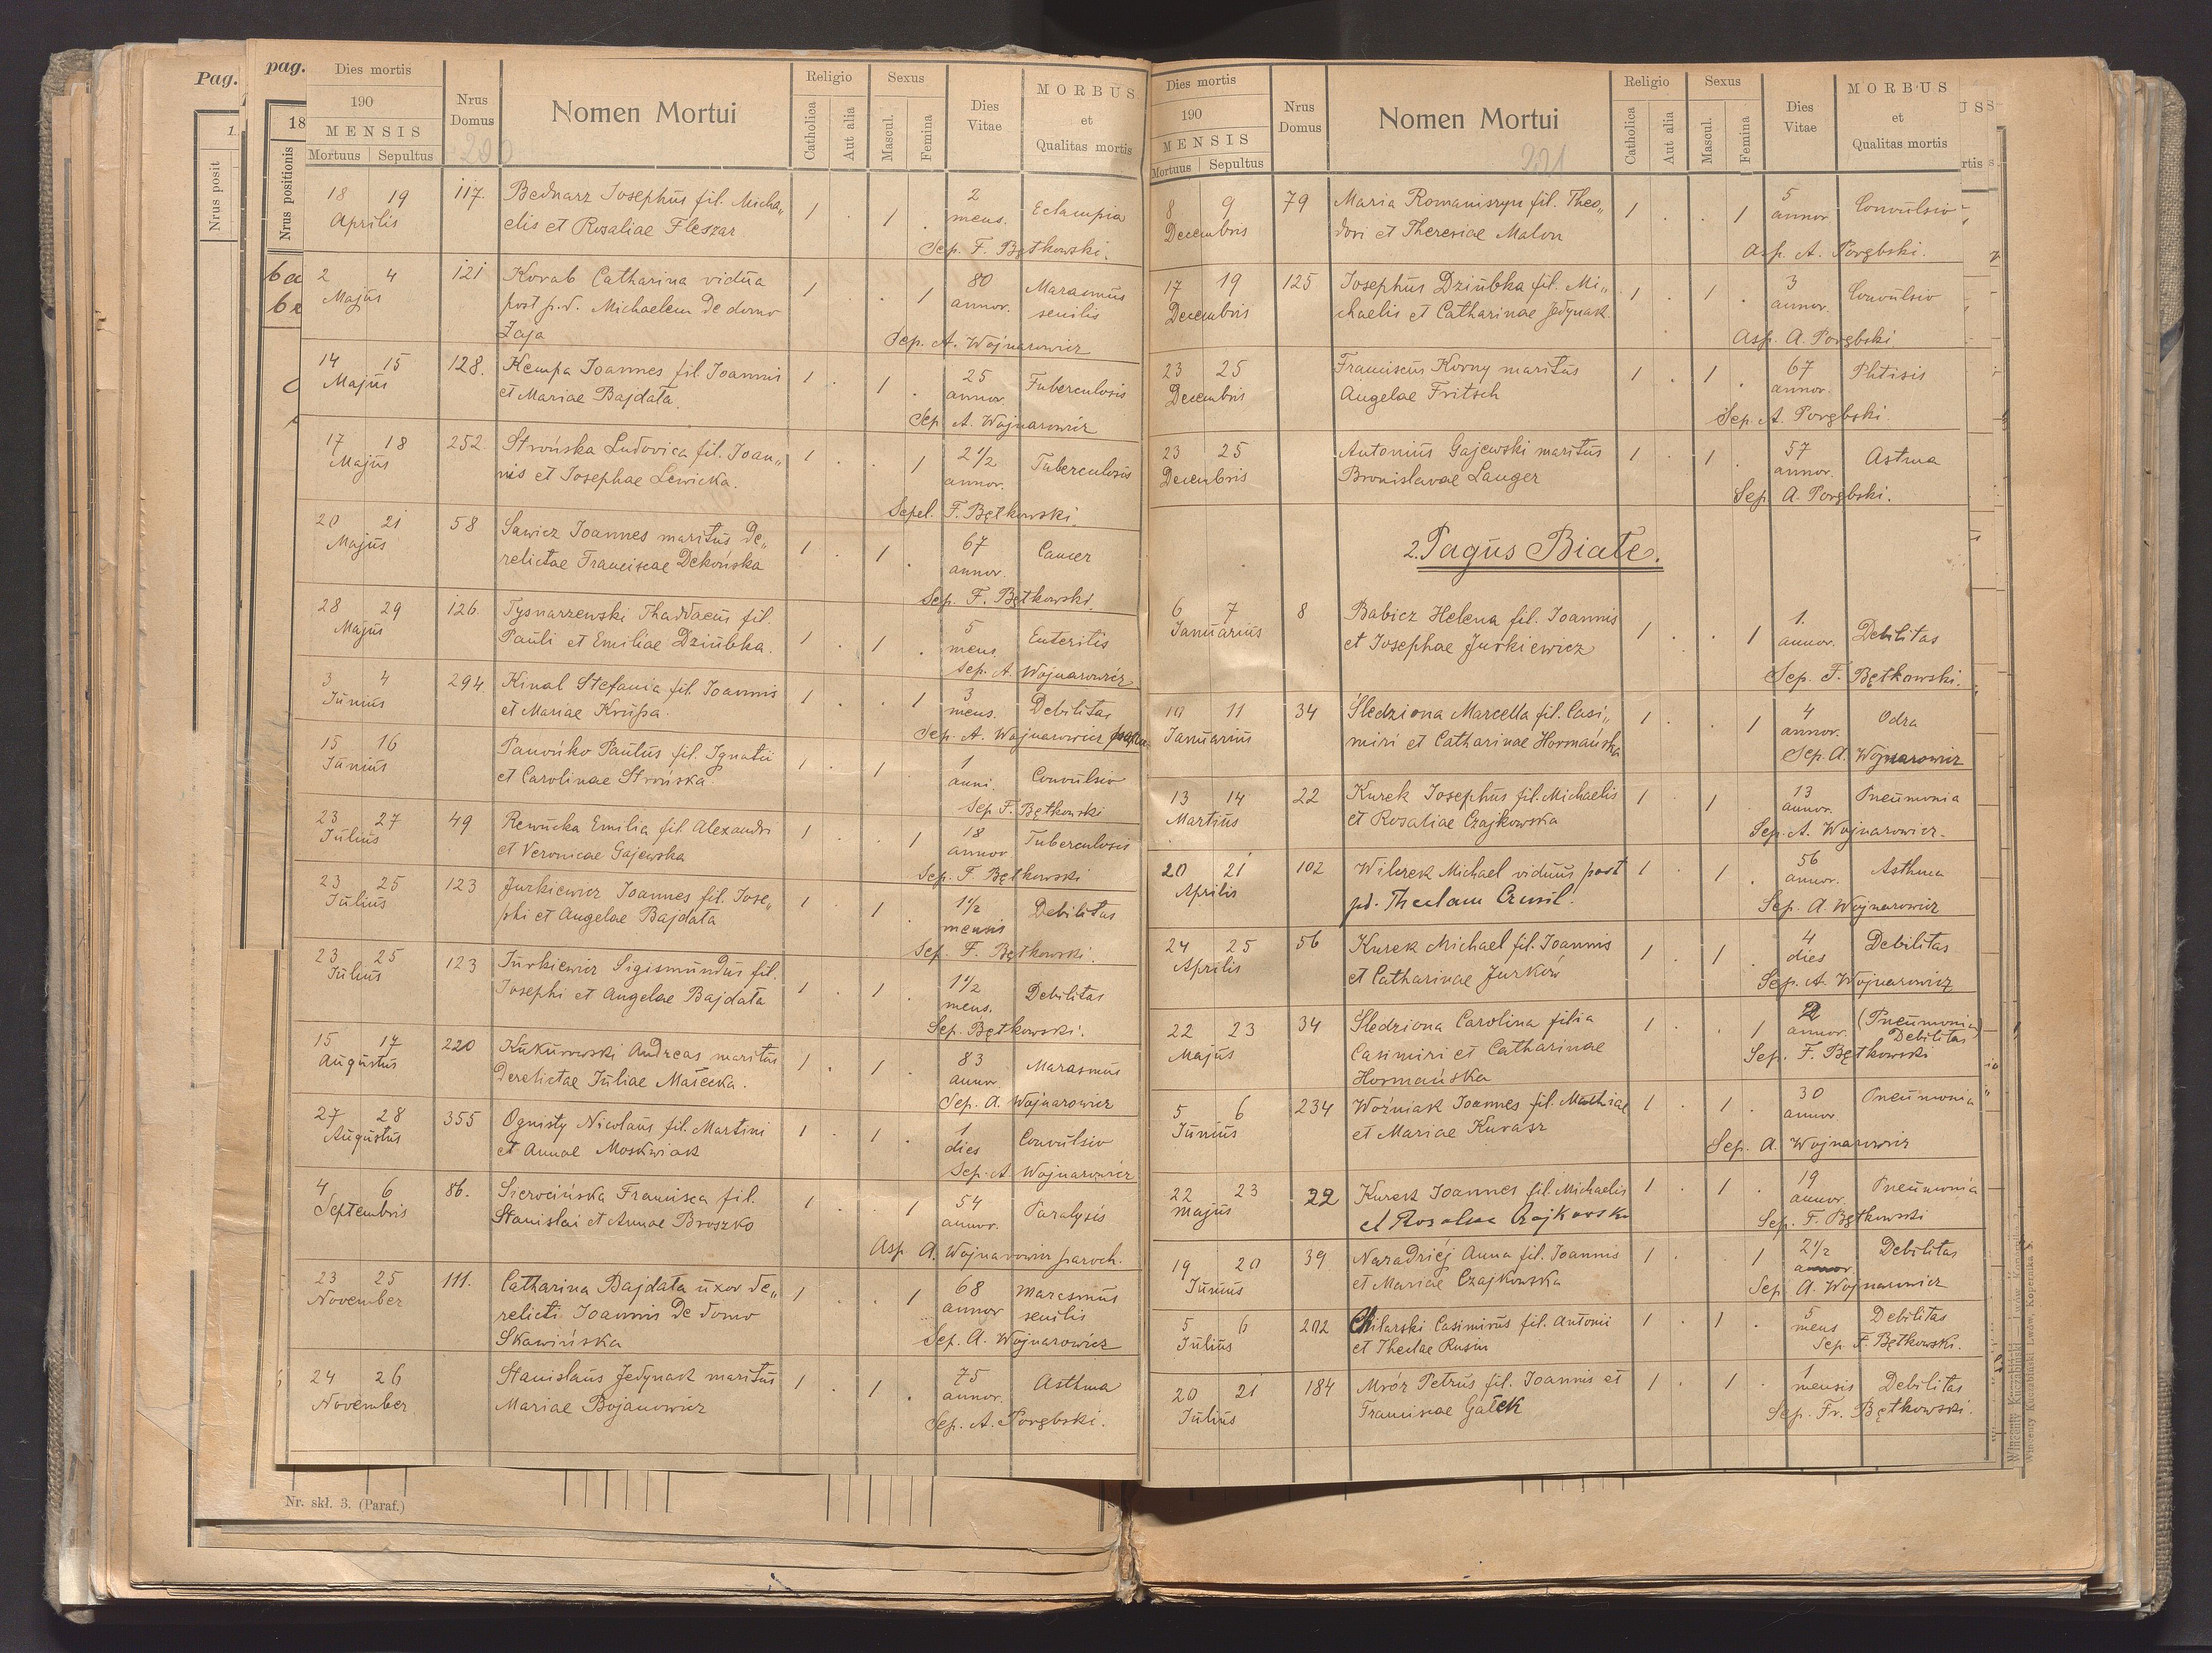 Pag.
pag.
18
Nrus posit
Nrus positionis
Dies mortis
190
MENSIS
Mortuus Sepultus
Nrus Domus
Nomen Mortui
Religio
Catholica
Aut alia
Sexus
Mascul.
Femina
Dies Vitae
MORBUS
et
Qualitas mortis
18 19 117. Bednarz Josephus fil. Micha„ 1 . 1 . 2 Eclampia
Aprilis elis et Rosaliae Fleszar mens.
Sep. F. Bętkowski.
2 4 121 Korab Catharina vidua 1 . . 1 80 Marasmus
Majus post p.d. Michaelem de domo annor. senilis
Zaja Sep. A. Wojnarowicz
14 15 128. Kempa Joannes fil. Joannis 1 . 1 . 25 Tuberculosis
Majus et Mariae Bajdata annor.
Sep. A. Wojnarowicz
17 18 252. Strońska Ludovica fil. Joan„ 1 . . 1 2 1/2 Tuberculosis
Majus nis et Josephae Lewicka. annor.
Sepel. F. Bętkowski.
20 21 58 Sawicz Joannes maritus de„ 1 . 1 . 67 Cancer
Majus relictae Franciscae Dekońska annor.
Sep. F. Bętkowski.
28 29 126. Tysnarzewski Thaddaeus fil. 1 . 1 . 5 Enteritis
Majus Pauli et Emiliae Dziubka. mens.
Sep. A. Wojnarowicz
3 4 294. Kinal Stefania fil. Joannis 1 . . 1 3 Debilitas
Junius et Mariae Krupa. mens.
Sep. A. Wojnarowicz
15 16 Panońko Paulus fil. Ignatii 1 . 1 . 1 Convulsio
Junius et Carolinae Strońska anni.
Sep F. Bętkowski
23 27 49 Rewucka Emilia fil. Alexandri 1 . 1 18 Tuberculosis
Julius et Veronicae Gajewska annor
Sep. F. Bętkowski
23 25 123 Jurkiewicz Joannes fil. Jose„ 1 . 1 . 1 1/2 Debilitas
Julius phi et Angelae Bajdata mensis
Sep. F. Bętkowski.
23 25 123 Jurkiewicz Sigismundus fil. 1 . 1 . 1 1/2 Debilitas
Julius Josephi et Angelae Bajdata mens.
Sep. Bętkowski.
15 17 220 Kukurowski Andreas maritus 1 . 1 . 83 Marasmus
Augustus derelictae Juliae Małecka. annor.
Sep. A. Wojnarowicz
27 28 355 Ognisty Nicolaus fil. Martini 1 . 1 . 1 Convulsio
Augustus et Annae Moskwiak dies
Sep. A Wojnarowicz
4 6 86. Sierocińska Francisca fil. 1 . . 1 54 Paralysis
Septembris Stanislai et Annae Broszko annor.
Asp A. Wojnarowicz paroch.
23 25 111. Catharina Bajdata uxor de„ 1 . . 1 68 Marasmus
November relicti Joannis de domo annor senilis
Skawińska Sep. A. Wojnarowicz
24 26 Stanislaus Jedynak maritus 1 . 1 . 75 Asthma
November Mariae Bojanowicz annor.
Sep. A. Porębski.
Nr. skł. 3. (Paraf.)
Dies mortis
190
MENSIS
Mortuus Sepultus
Nrus Domus
Nomen Mortui
221
Religio
Catholica
Aut alia
Sexus
Mascul.
Femina
Dies Vitae
MORBUS
et
Qualitas mortis
8 9 79 Maria Romaniszyn fil. Theo„ 1 . . 1 5 Convulsio
Decembris dori et Theresiae Malon annor.
Asp. A. Porębski.
17 19 125 Josephus Dziubka fil. Mi„ 1 . 1 . 3 Convulsio
Decembris chaelis et Catharinae Jedynak annor.
Asp. A. Porębski.
23 25 Franciscus Korny maritus 1 . 1 . 67 Phtisis
Decembris Angelae Fritsch annor.
Sep. A. Porębski.
23 25 Antonius Gajewski maritus 1 . 1 . 57 Astma
Decembris Bronislavae Langer annor.
Sep. A. Porębski.
2. Pagus Białe.
6 7 8 Babicz Helena fil. Joannis 1 . . 1 1. Debilitas
Januarius et Josephae Jurkiewicz annor.
Sep. F. Bętkowski.
10 11 34 Śledziona Marcella fil. Casi„ 1 . . 1 4 Odra
Januarius miri et Catharinae Hormańska annor.
Sep. A. Wojnarowicz
13 14 22 Kurek Josephus fil. Michaelis 1 1 13 Pneumonia
Martius et Rosaliae Czajkowska annor.
Sep. A. Wojnarowicz.
20 21 102 Wilczek Michael viduus post 1 . 1 . 56 Asthma
Aprilis pd. Theclam annor.
Sep. A. Wojnarowicz
24 25 56 Kurek Michael fil. Joannis 1 . 1 . 4 Debilitas
Aprilis et Catharinae Jurków dies
Sep. A. Wojnarowicz
22 23 34 Śledziona Carolina filia 1 . . 1 2 (Pneumonia)
Majus Casimiri et Catharinae annor. Debilitas
Hormańska Sep. F. Bętkowski
5 6 234 Woźniak Joannes fil. Mathiae 1 . 1 . 30 Pneumonia
Junius et Mariae Kurasz annor.
Sep. A. Wojnarowicz
22 23 22 Kurek Joannes fil. Michaelis 1 . 1 . 19 Pneumonia
Majus et Rosaliae Czajkowska annor.
Sep. F. Bętkowski
19 20 39 Naradziej Anna fil. Joannis 1 . 1 2 1/2 Debilitas
Junius et Mariae Czajkowska annor
Sep A. Wojnarowicz
5 6 202 Chilarski Casimirus fil. Antonii 1 . 1 . 5 Debilitas
Julius et Theclae Rusin mens
Sep. F. Bętkowski.
20 21 184 Mróz Petrus fil. Joannis et 1 . 1 1 Debilitas
Julius Franciscae Gałek mensis
Sep. Fr. Bętkowski.